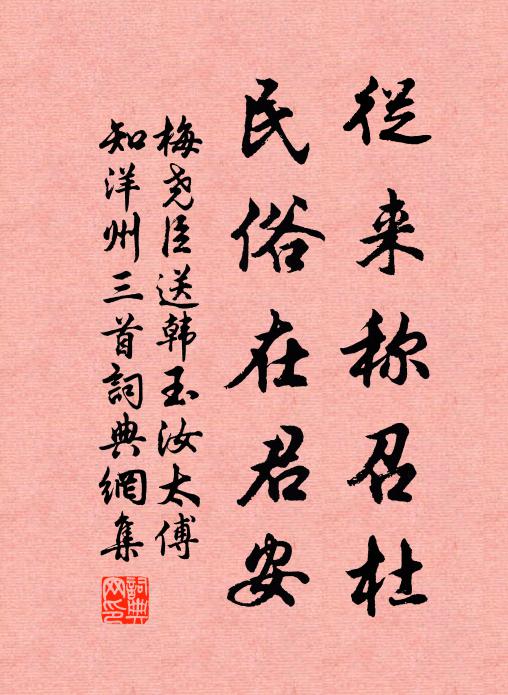 從来称召杜
民俗在君安
梅尧臣送韩玉汝太傅
知洋州三首詞典網集
詞典網印